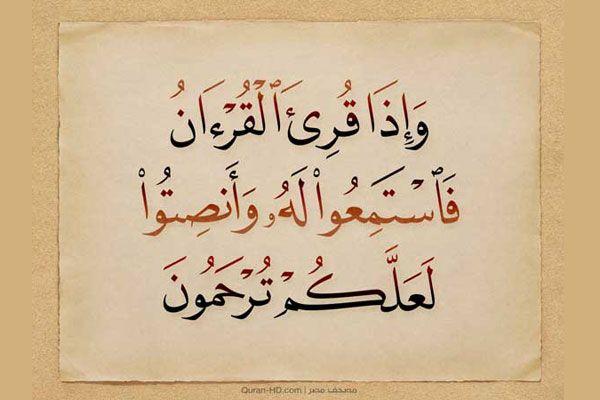 وَإِذَا قُرِئَ ٱلْقُرْءَانُ
فَٱسْتَمِعُوا۟ لَهُۥ وَأَنصِتُوا۟
لَعَلَّكُمْ تُرْحَمُونَ
Quran-HD.com | مصحف مصر